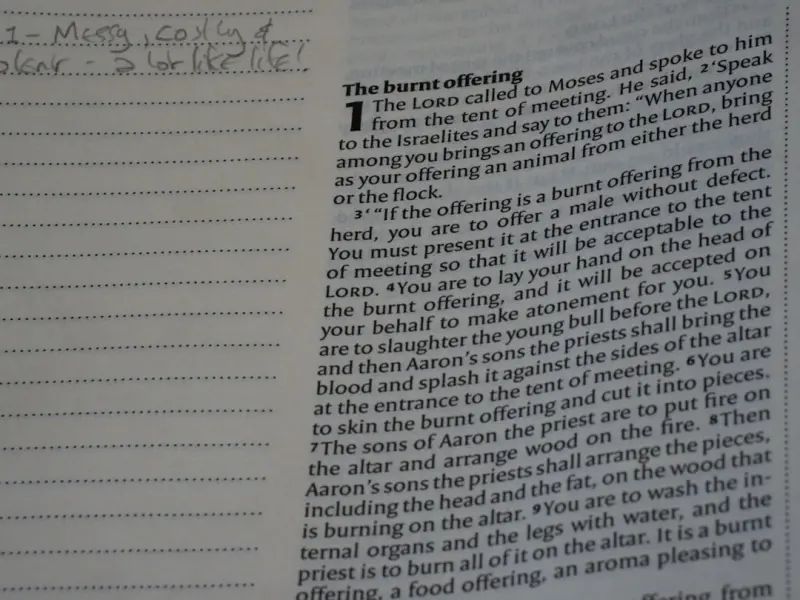 1 - Messy, costly &
- a lot like life!
The burnt offering
1 The LORD called to Moses and spoke to him
from the tent of meeting. He said, 2 ‘Speak
to the Israelites and say to them: “When anyone
among you brings an offering to the LORD, bring
as your offering an animal from either the herd
or the flock.
3 ‘ “If the offering is a burnt offering from the
herd, you are to offer a male without defect.
You must present it at the entrance to the tent
of meeting so that it will be acceptable to the
LORD. 4 You are to lay your hand on the head of
the burnt offering, and it will be accepted on
your behalf to make atonement for you. 5 You
are to slaughter the young bull before the LORD,
and then Aaron’s sons the priests shall bring the
blood and splash it against the sides of the altar
at the entrance to the tent of meeting. 6 You are
to skin the burnt offering and cut it into pieces.
7 The sons of Aaron the priest are to put fire on
the altar and arrange wood on the fire. 8 Then
Aaron’s sons the priests shall arrange the pieces,
including the head and the fat, on the wood that
is burning on the altar. 9 You are to wash the in-
ternal organs and the legs with water, and the
priest is to burn all of it on the altar. It is a burnt
offering, a food offering, an aroma pleasing to
offering from